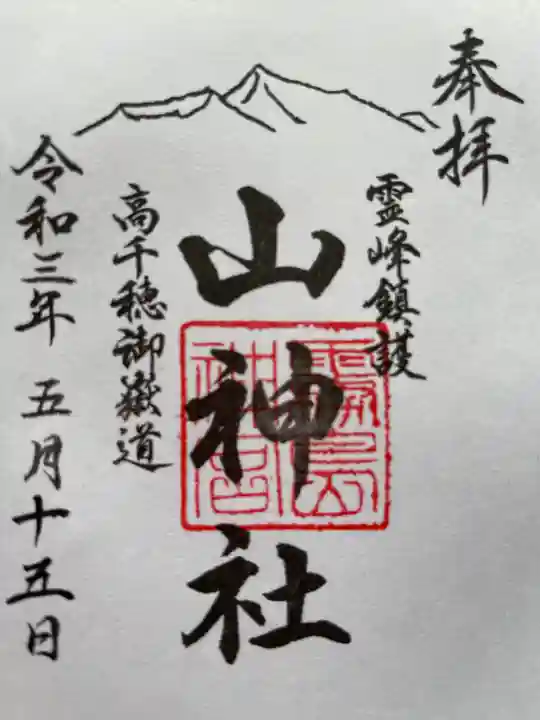 奉拝
霊峰鎮護
山神社
霧島神宮
高千穂御嶽道
令和三年 五月十五日